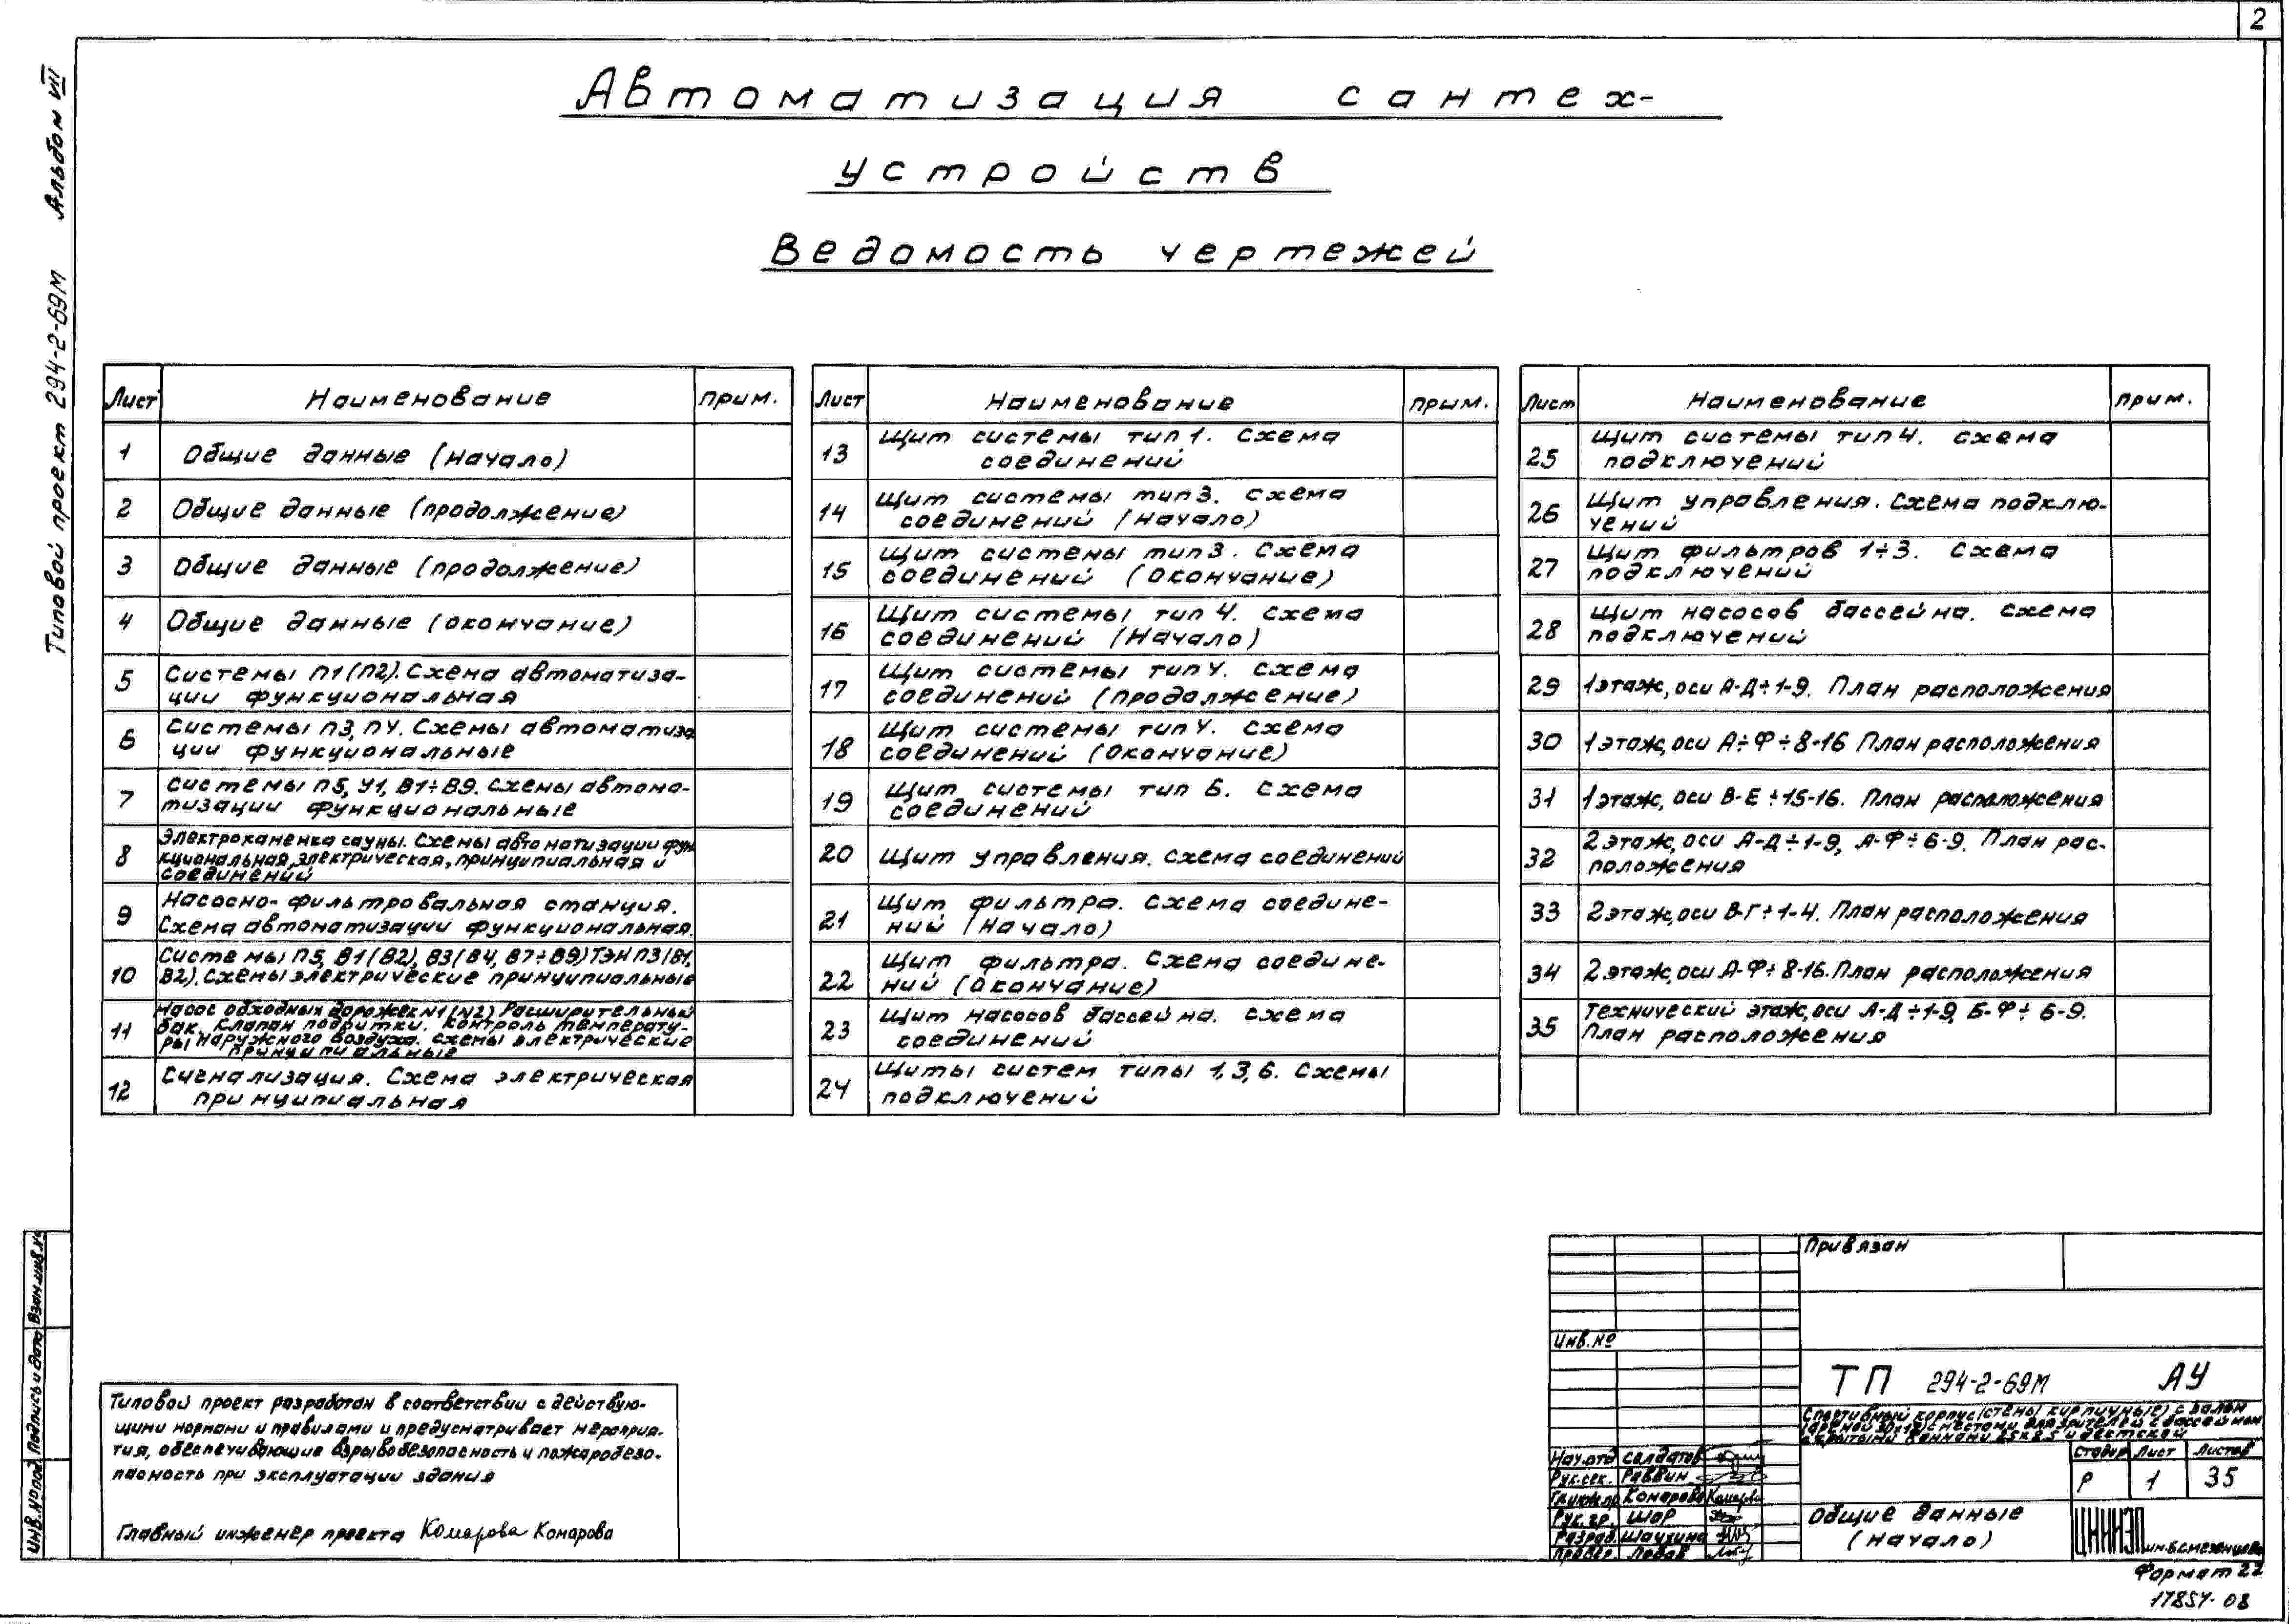 2
Типовой проект 294-2-69М Альбом VII
Автоматизация сантех-
устройств
Ведомость чертежей
Лист Наименование прим.
1 Общие данные (начало)
2 Общие данные (продолжение)
3 Общие данные (продолжение)
4 Общие данные (окончание)
5 Системы П1(П2). Схема автоматиза-
ции функциональная
6 Системы П3, П4. Схемы автоматиза
ции функциональные
7 Системы П5, У1, В1÷В9. Схемы автома-
тизации функциональные
8 Электрокаменка сауны. Схемы автоматизации фун
кциональная, электрическая, принципиальная и
соединений
9 Насосно-фильтровальная станция.
Схема автоматизации функциональная.
10 Системы П5, В1(В2), В3(В4, В7÷В9) ТЭН П3(В1,
В2). Схемы электрические принципиальные
11 Насос обходных дорожек N1(N2) Расширительный
бак. Клапан подпитки. Контроль температу-
ры наружного воздуха. Схемы электрические
принципиальные
12 Сигнализация. Схема электрическая
принципиальная
Лист Наименование прим.
13 Щит системы тип 1. Схема
соединений
14 Щит системы тип 3. Схема
соединений (Начало)
15 Щит системы тип 3. Схема
соединений (Окончание)
16 Щит системы тип 4. Схема
соединений (Начало)
17 Щит системы тип 4. Схема
соединений (продолжение)
18 Щит системы тип 4. Схема
соединений (Окончание)
19 Щит системы тип 6. Схема
соединений
20 Щит управления. Схема соединений
21 Щит фильтра. Схема соедине-
ний (Начало)
22 Щит фильтра. Схема соедине-
ний (Окончание)
23 Щит насосов бассейна. Схема
соединений
24 Щиты систем типы 1,3,6. Схемы
подключений
Лист Наименование прим.
25 Щит системы тип 4. Схема
подключений
26 Щит управления. Схема подклю-
чений
27 Щит фильтров 1÷3. Схема
подключений
28 Щит насосов бассейна. Схема
подключений
29 1 этаж, оси А-Д÷1-9. План расположения
30 1 этаж, оси А÷Ф÷8-16 План расположения
31 1 этаж, оси В-Е÷15-16. План расположения
32 2 этаж, оси А-Д÷1-9, А-Ф÷6-9. План рас-
положения
33 2 этаж, оси В-Г÷1-4. План расположения
34 2 этаж, оси А-Ф÷8-16. План расположения
35 Технический этаж, оси А-Д÷1-9, Б-Ф÷6-9.
План расположения
Типовой проект разработан в соответствии с действую-
щими нормами и правилами и предусматривает мероприя-
тия, обеспечивающие взрывобезопасность и пожаробезо-
пасность при эксплуатации здания
Главный инженер проекта Комарова Комарова
Инв.№ подл. Подпись и дата Взам.инв.№
Привязан
Инв.№
ТП 294-2-69М АУ
Спортивный корпус (стены кирпичные) с залом
ареной 30х18) с местами для зрителей с бассейном
с крытыми ваннами 25х8.5 и детской
Нач.отд Солдатов
Рук.сек. Раввин
Гл.инж.пр Комарова Комарова
Рук.гр. Шор
Разраб. Шаухина
Провер. Лобов
Стадия Лист Листов
Р 1 35
Общие данные
(начало)
ЦНИИЭП им.Б.С.Мезенцева
Формат 22
17854-08